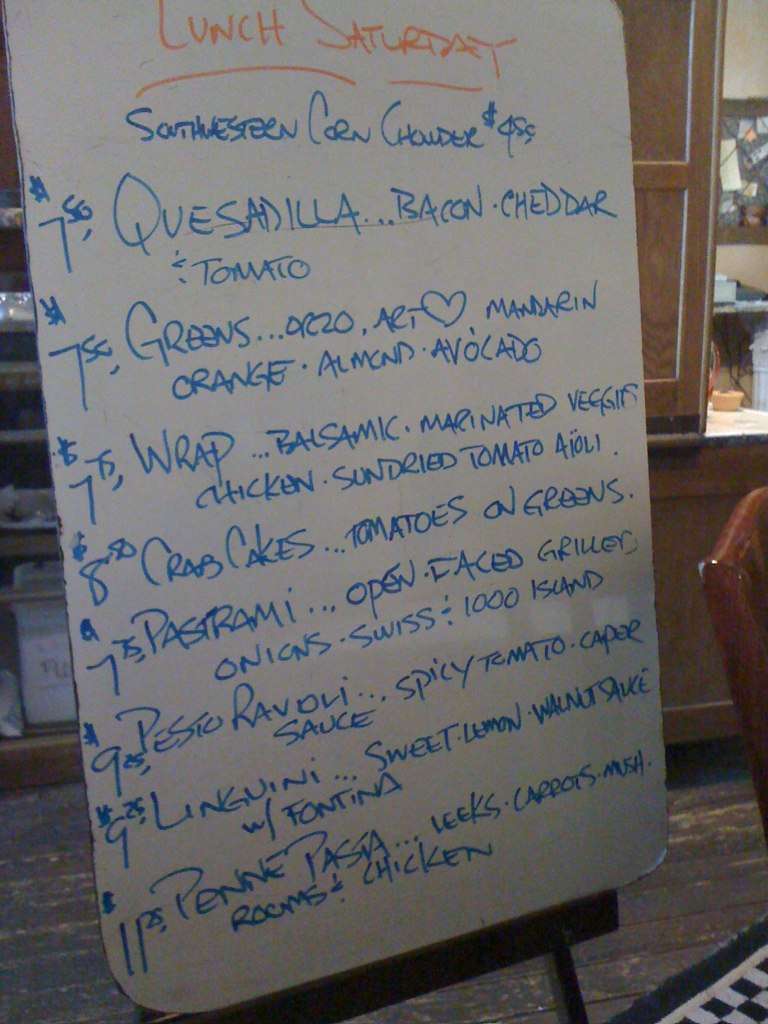 LUNCH SATURDAY
SOUTHWESTERN CORN CHOWDER $4.55
$7.50, QUESADILLA...BACON·CHEDDAR
& TOMATO
$7.50, GREENS...ORZO, ART♡ MANDARIN
ORANGE·ALMOND·AVOCADO
$7.75, WRAP...BALSAMIC·MARINATED VEGGIES
CHICKEN·SUNDRIED TOMATO AÏOLI.
$8.50 CRAB CAKES...TOMATOES ON GREENS.
$7.75, PASTRAMI...OPEN·FACED GRILLED
ONIONS·SWISS & 1000 ISLAND
$9.25, PESTO RAVIOLI...SPICY TOMATO·CAPER
SAUCE
$9.25, LINGUINI...SWEET·LEMON·WALNUT SAUCE
W/ FONTINA
$11.25, PENNE PASTA...LEEKS·CARROTS·MUSH·
ROOMS & CHICKEN